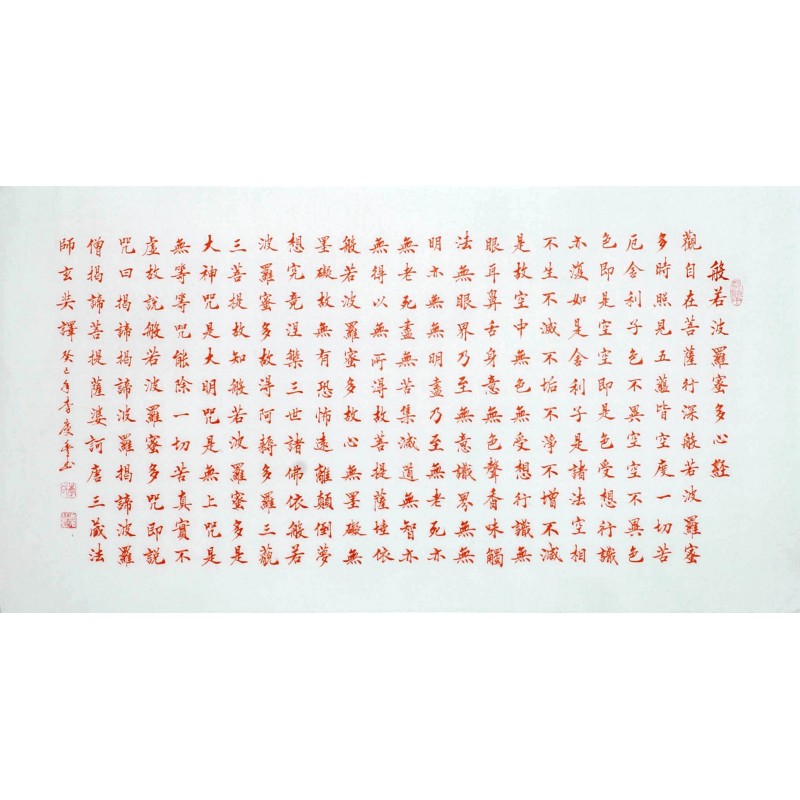 般若波羅蜜多心經
觀自在菩薩行深般若波羅蜜
多時照見五蘊皆空度一切苦
厄舍利子色不異空空不異色
色即是空空即是色受想行識
亦復如是舍利子是諸法空相
不生不滅不垢不淨不增不減
是故空中無色無受想行識無
眼耳鼻舌身意無色聲香味觸
法無眼界乃至無意識界無無
明亦無無明盡乃至無老死亦
無老死盡無苦集滅道無智亦
無得以無所得故菩提薩埵依
般若波羅蜜多故心無罣礙無
罣礙故無有恐怖遠離顛倒夢
想究竟涅槃三世諸佛依般若
波羅蜜多故得阿耨多羅三藐
三菩提故知般若波羅蜜多是
大神咒是大明咒是無上咒是
無等等咒能除一切苦真實不
虛故說般若波羅蜜多咒即說
咒曰揭諦揭諦波羅揭諦波羅
僧揭諦菩提薩婆訶唐三藏法
師玄奘譯 癸巳年李慶